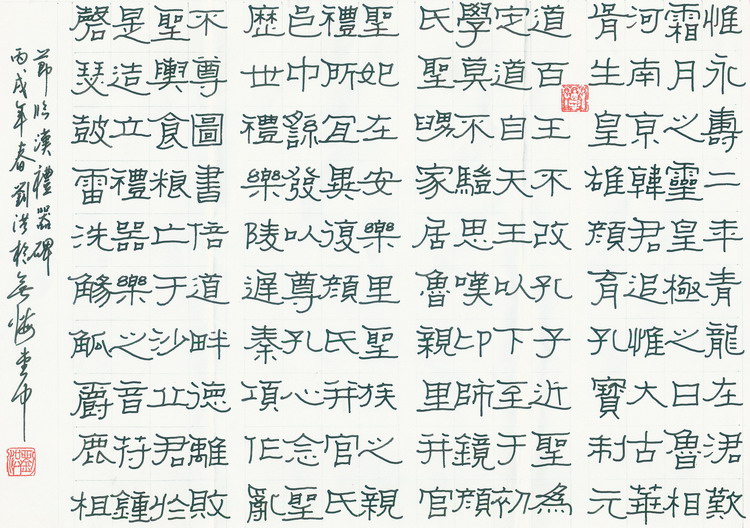 惟永壽二年青龍在涒歎
霜月之靈皇極之日魯相
河南京韓君追惟大古華
胥生皇雄顏育孔寶制元
道百王不改孔子近聖為
定道自天王以下至于初
學莫不驥思嘆卬師鏡顏
氏聖舅家居魯親里并官
聖妃在安樂里聖族之親
禮所宜異復顏氏并官氏
邑中繇發以尊孔心念聖
歷世禮樂陵遲秦項作亂
不尊圖書倍道畔德離敗
聖輿食粮亡于沙丘君於
是造立禮器樂之音苻鍾
磬瑟鼓雷洗觴觚爵鹿柤
節臨漢禮器碑
丙戌年春劉洪於無悔堂中